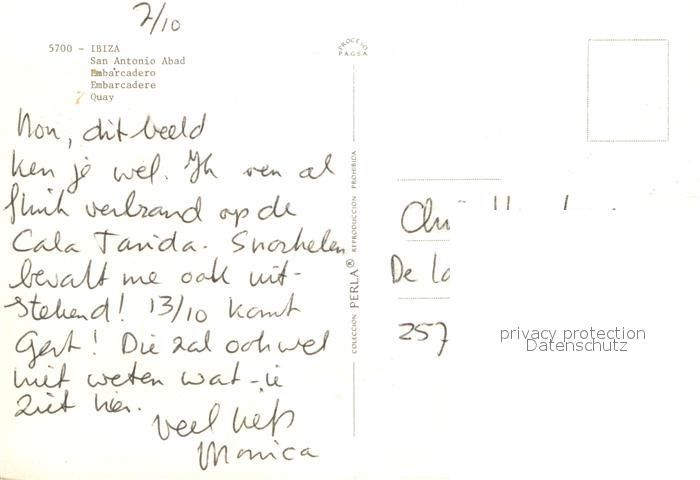 7/10
5700 - IBIZA
San Antonio Abad
Embarcadero
Embarcadere
Quay
PROCESO
PAGSA
Non, dit beeld
ken je wel. Ik ren al
flink verbrand op de
Cala Tarida. Snorkelen
bevalt me ook uit-
stekend! 13/10 komt
Gert! Die zal ook wel
niet weten wat-ie
ziet hier.
Veel liefs
Monica
COLECCION PERLA® REPRODUCCION PROHIBIDA
De la
257
privacy protection
Datenschutz